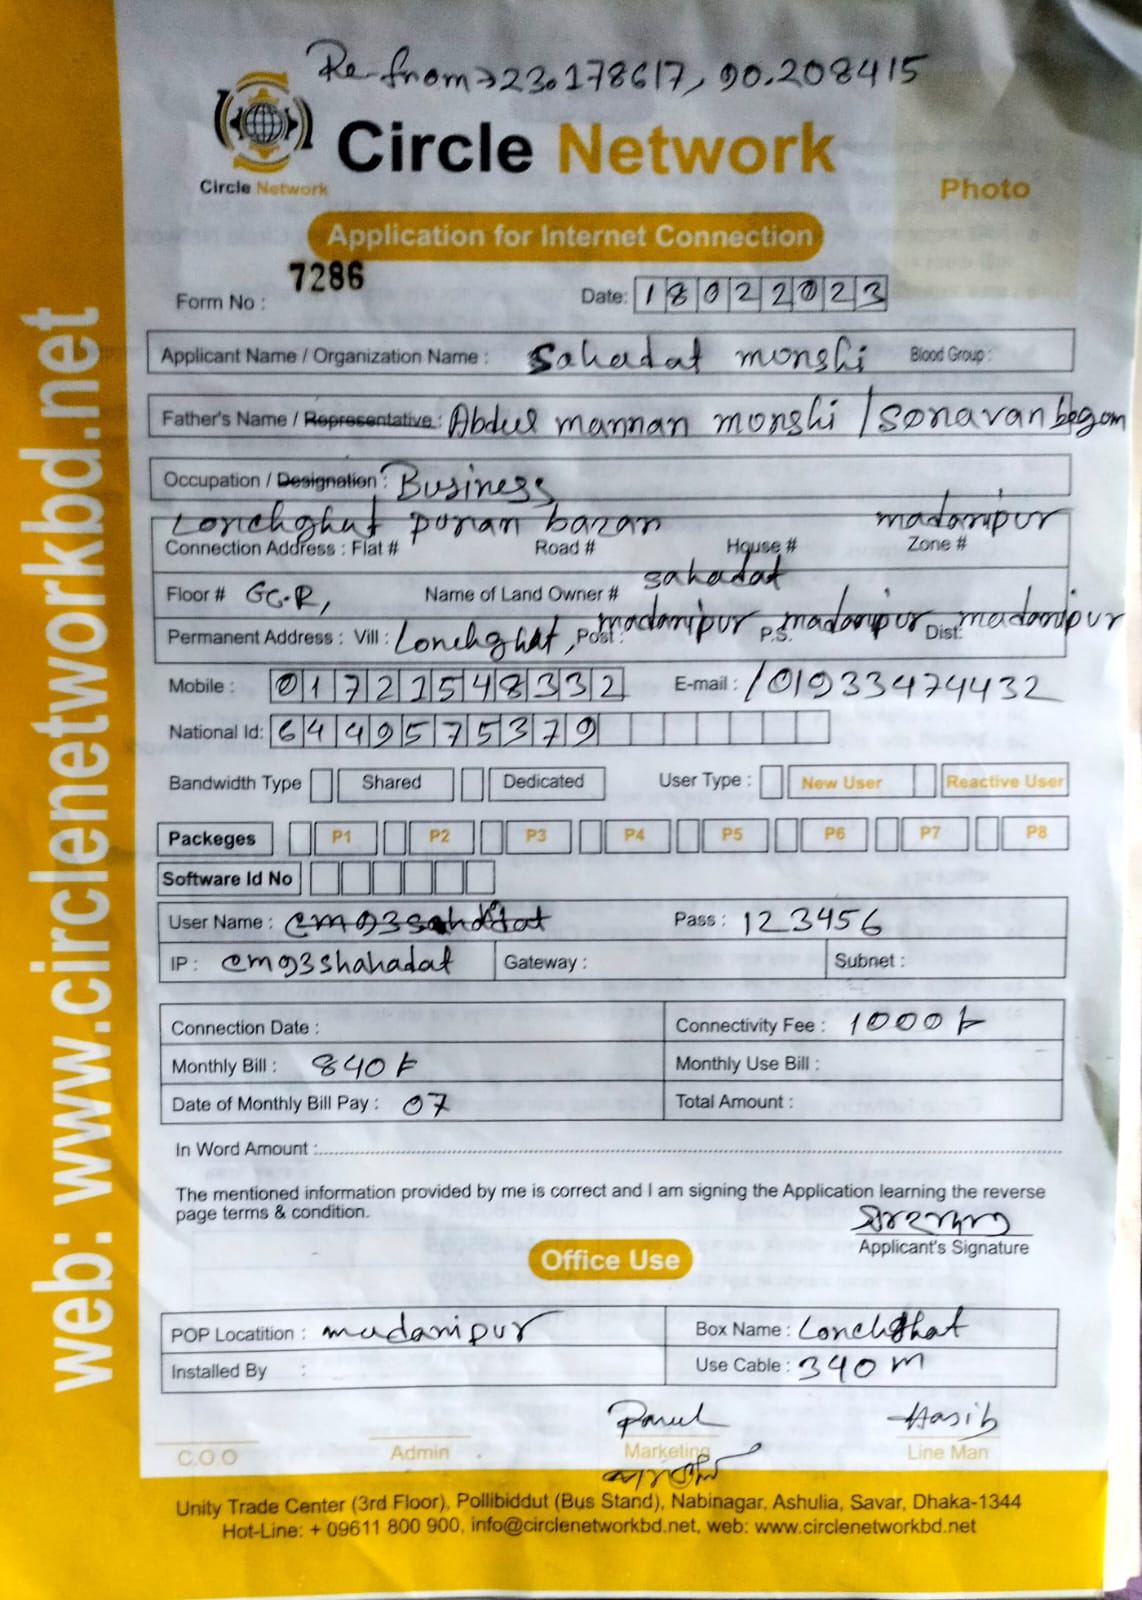 Re-from→23.178617, 90.208415
Circle Network
Circle Network
Photo
Application for Internet Connection
Form No : 7286
Date: 18022023
Applicant Name / Organization Name : Sahadat monshi Blood Group :
Father's Name / Representative : Abdul mannan monshi / sonavan begom
Occupation / Designation : Business
Lonchghat puran bazar madaripur
Connection Address : Flat # Road # House # Zone #
Floor # GC-R, Name of Land Owner # sahadat
Permanent Address : Vill : Lonchghat, Post : madaripur P.S. madaripur Dist: madaripur
Mobile : 01721548332 E-mail : /01933474432
National Id: 6449575379
Bandwidth Type Shared Dedicated User Type : New User Reactive User
Packeges P1 P2 P3 P4 P5 P6 P7 P8
Software Id No
User Name : Pass : 123456
IP : cm93shahadat Gateway : Subnet :
Connection Date : Connectivity Fee : 1000 ৳
Monthly Bill : 840 ৳ Monthly Use Bill :
Date of Monthly Bill Pay : 07 Total Amount :
In Word Amount :
The mentioned information provided by me is correct and I am signing the Application learning the reverse
page terms & condition.
Applicant's Signature
Office Use
POP Locatition : madaripur Box Name : Lonchghat
Installed By : Use Cable : 340 m
Parul Hasib
C.O.O Admin Marketing Line Man
Unity Trade Center (3rd Floor), Pollibiddut (Bus Stand), Nabinagar, Ashulia, Savar, Dhaka-1344
Hot-Line: + 09611 800 900, info@circlenetworkbd.net, web: www.circlenetworkbd.net
web: www.circlenetworkbd.net